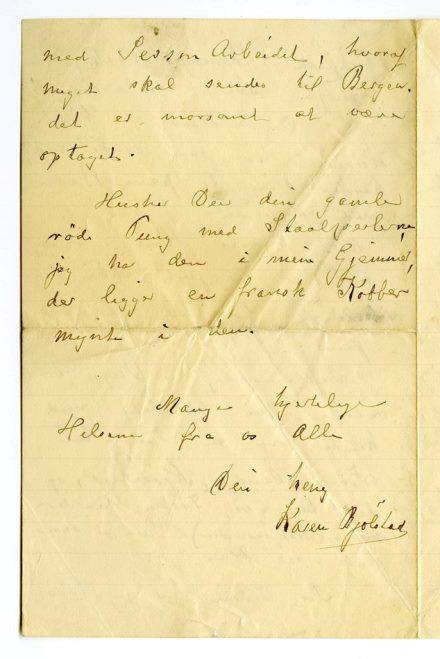 med Sesson Arbeidet, hvoraf
meget skal sendes til Bergen.
det er morsomt at være
optaget.
Husker Du din gamle
røde Pung med Staalperlerne
jeg har den i mine Gjemmer,
der ligger en fransk Kobber
mynt i den.
Mange hjertelige
Hilsener fra os Alle
Din heng
Karen Bjølstad